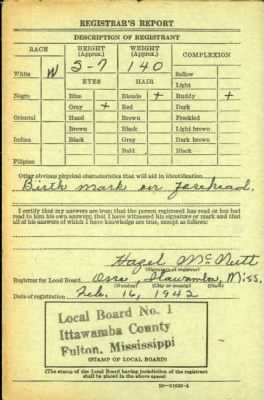 REGISTRAR'S REPORT
DESCRIPTION OF REGISTRANT
RACE HEIGHT (Approx.) WEIGHT (Approx.) COMPLEXION
White W 5-7 140 Sallow
EYES HAIR Light
Negro Blue Blonde + Ruddy +
Gray + Red Dark
Oriental Hazel Brown Freckled
Brown Black Light brown
Indian Black Gray Dark brown
Bald Black
Filipino
Other obvious physical characteristics that will aid in identification
Birth mark on forehead.
I certify that my answers are true; that the person registered has read or has had
read to him his own answers; that I have witnessed his signature or mark and that
all of his answers of which I have knowledge are true, except as follows:
Hazel McNutt
(Signature of registrar)
Registrar for Local Board Itawamba, Miss.
(Number) (City or county) (State)
Date of registration Feb. 16, 1942
Local Board No. 1
Ittawamba County
Fulton, Mississippi
(STAMP OF LOCAL BOARD)
(The stamp of the Local Board having jurisdiction of the registrant
shall be placed in the above space)